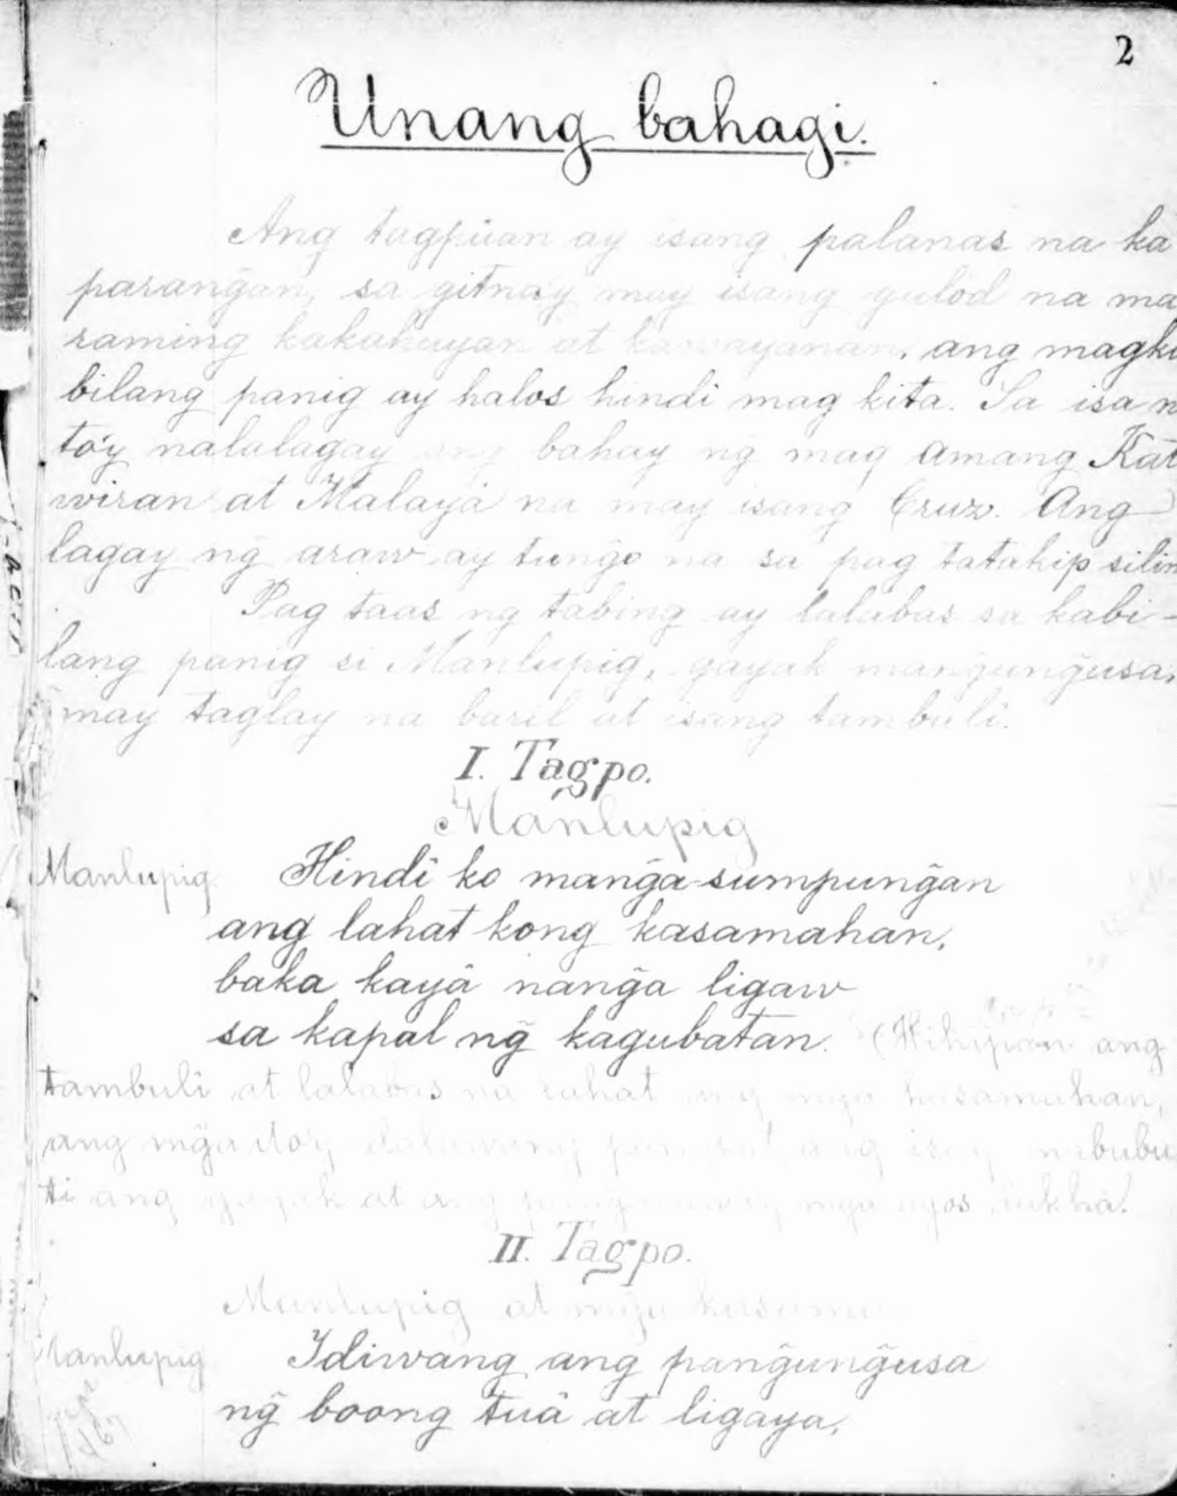 2
Unang bahagi.
Ang tagpuan ay isang palanas na ka
parang̃an, sa gitna'y may isang gulod na ma
raming kakahuyan at kawayanan, ang magka
bilang panig ay halos hindi mag kita. Sa isa n
to'y nalalagay ang bahay ng̃ mag amang Kat
wiran at Malaya na may isang Cruz. Ang
lagay ng̃ araw ay tung̃o na sa pag tatakip silim
Pag taas ng tabing ay lalabas sa kabi-
lang panig si Manlupig, gayak mang̃ung̃usa,
may taglay na baril at isang tambuli.
I. Tagpo.
Manlupig
Manlupig Hindî ko mang̃a-sumpung̃an
ang lahat kong kasamahan,
baka kayâ nang̃a ligaw
sa kapal ng̃ kagubatan. (Hihipan ang
tambuli at lalabas na lahat ang mg̃a kasamahan,
ang mg̃a ito'y dalawang ang isa'y mabubu
ti ang gayak at ang mg̃a ayos
II. Tagpo.
Manlupig at mg̃a kasama
Manlupig Ydiwang ang pang̃ung̃usa
ng̃ boong tuâ at ligaya,